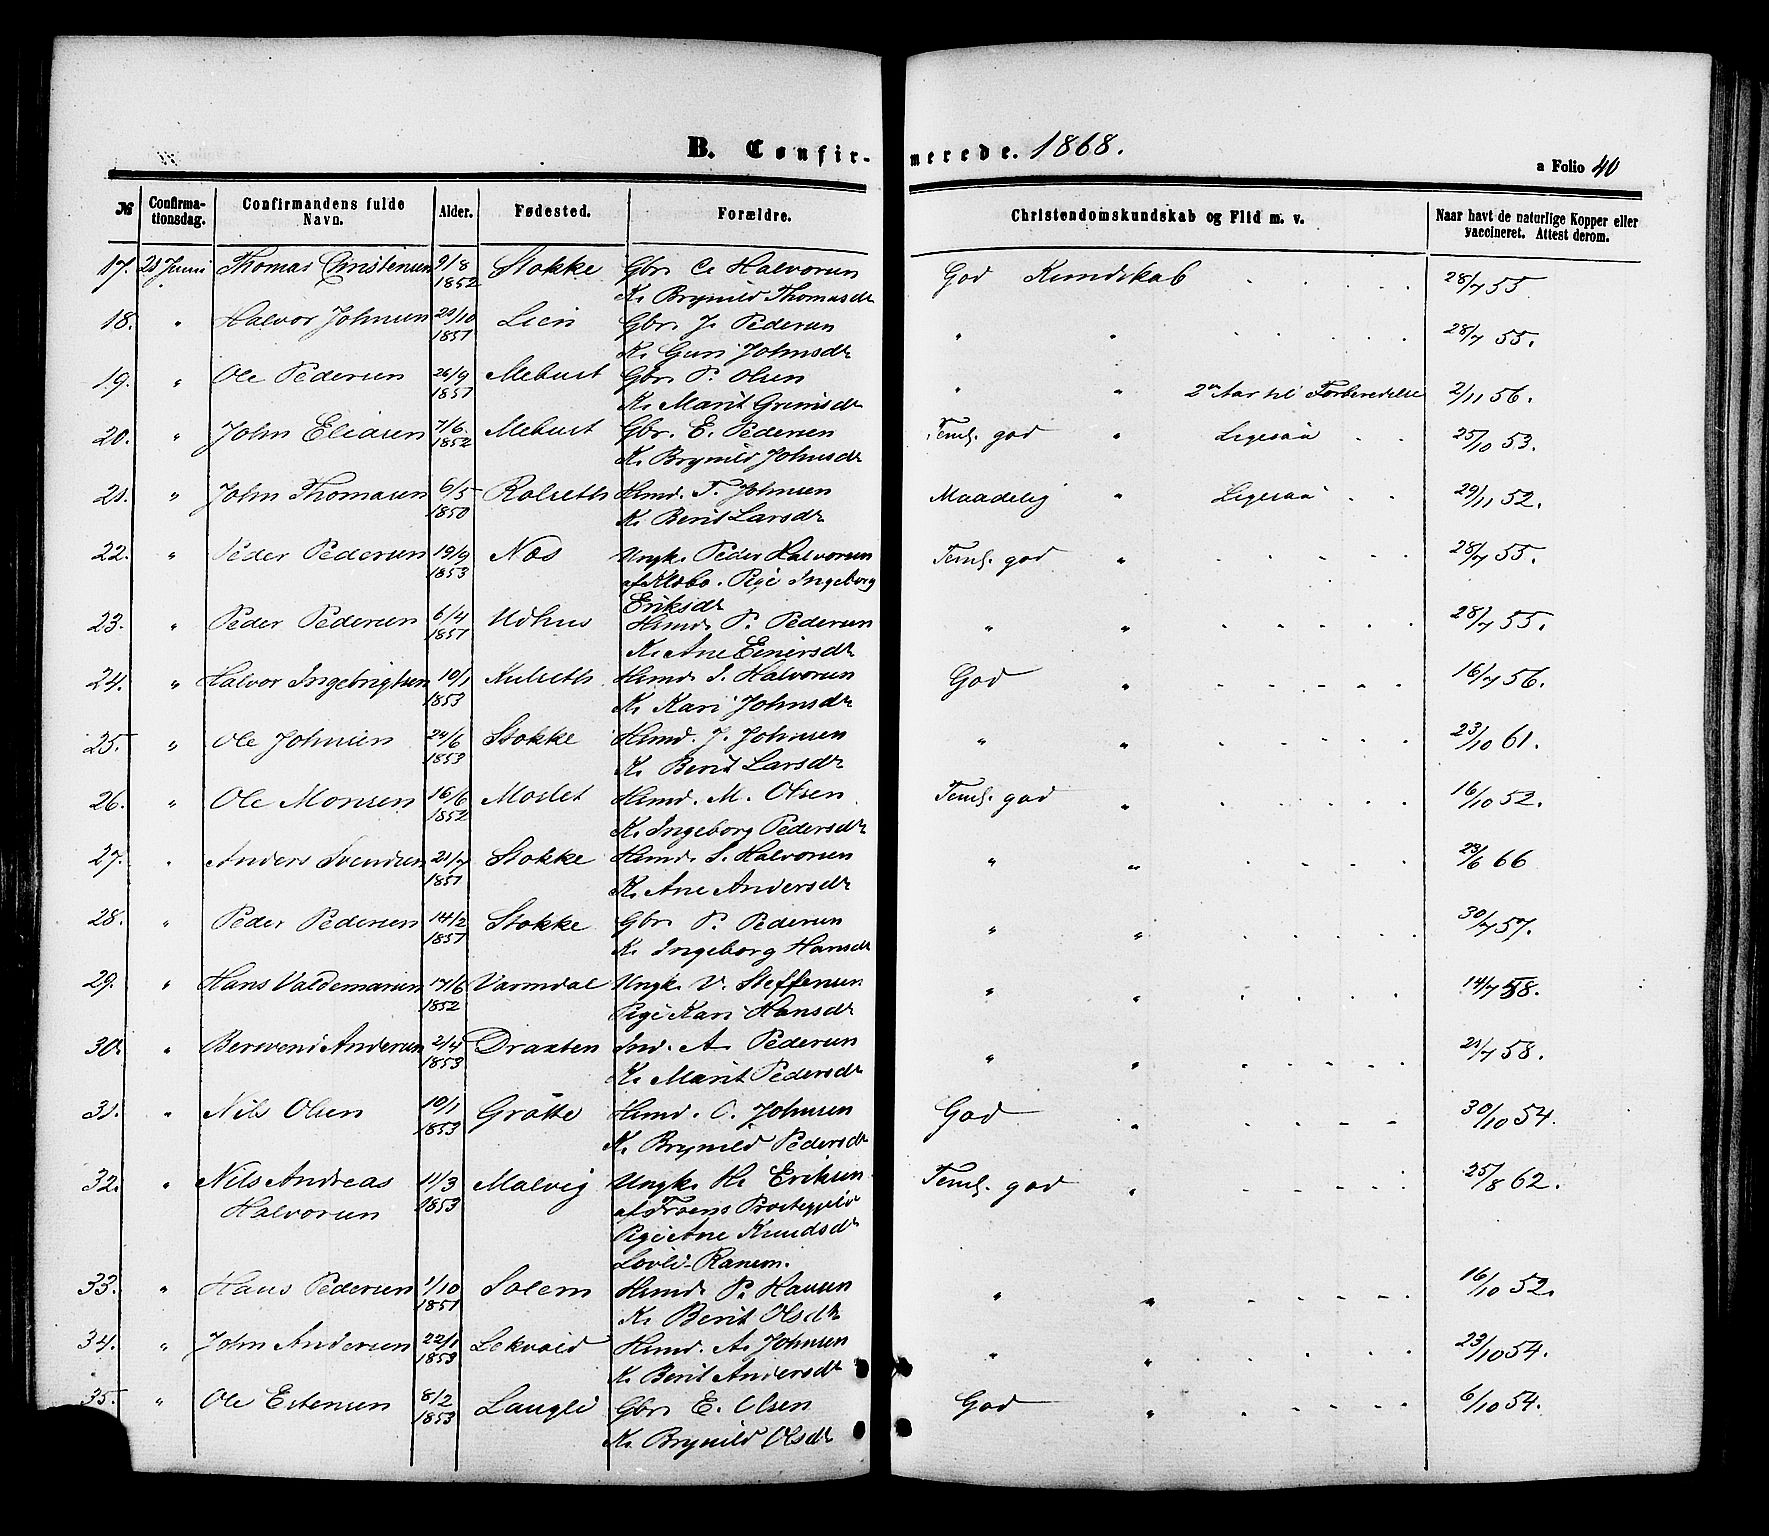 B. Confir-
merede. 1868.
a Folio 40
№ Confirma-tionsdag. Confirmandens fulde Navn. Alder. Fødested. Forældre. Christendomskundskab og Flid m. v. Naar havt de naturlige Kopper eller vaccineret. Attest derom.
17. 21 Juni Thomas Christensen 9/8 1852 Stokke Gbr. C. Halvorsen God Kundskab 28/7 55
K. Brynild Thomasdr
18. " Halvor Johnsen 29/10 1851 Lien Gbr. J. Pedersen " " 28/7 55.
K. Guri Johnsdr
19. " Ole Pedersen 26/9 1851 Mebust Gbr. P. Olsen " " 2den Aar til Forberedelse 2/11 56.
K. Marit Grimsdr
20. " John Eliasen 7/6 1852 Mebust Gbr. E. Pedersen Teml. god " Ligesaa 25/10 53.
K. Brynild Johnsdr
21. " John Thomasen 6/5 1850 Rolseth Hmd. T. Johnsen Maadelig " Ligesaa 29/11 52.
K. Berit Larsdr
22. " Peder Pedersen 19/9 1853 Næs Ungk. Peder Halvorsen Teml. god " 28/7 55.
af Klæbo. Pige Ingeborg
Eriksdr
23. " Peder Pedersen 6/4 1851 Udhus Hmd. P. Pedersen " " 28/7 55.
K. Ane Einersdr
24. " Halvor Ingebrigtsen 10/1 1853 Hmd. I. Halvorsen God " 16/7 56.
K. Kari Johnsdr
25. " Ole Johnsen 24/6 1853 Stokke Hmd. J. Johnsen " " 23/10 61.
K. Berit Larsdr
26. " Ole Monsen 16/6 1852 Moslet Hmd. M. Olsen Teml. god " 16/10 52.
K. Ingeborg Pedersdr
27. " Anders Svendsen 21/7 1851 Stokke Hmd. S. Halvorsen " " 23/6 66
K. Ane Andersdr
28. " Peder Pedersen 14/2 1851 Stokke Gbr. P. Pedersen " " 30/7 57.
K. Ingeborg Hansdr
29. " Hans Valdemarsen 17/6 1852 Varmdal Ungk. V. Steffensen " " 14/7 58.
Pige Kari Hansdr
30. " Bersvend Andersen 2/4 1853 Draxten Ind. A. Pedersen " " 21/7 58.
K. Marit Pedersdr
31. " Nils Olsen 10/1 1853 Grötte Hmd. O. Johnsen God " 30/10 54.
K. Brynild Pedersdr
32. " Nils Andreas 11/3 1853 Malvig Ungk. H. Eriksen Teml. god " 25/8 62.
Halvorsen af Præstegjeld
Pige Ane Knudsdr
Lövli-Ranem.
33. " Hans Pedersen 1/10 1851 Solem Hmd. P. Hansen " " 16/10 52.
K. Berit Olsdr
34. " John Andersen 22/1 1853 Lekvold Hmd. A. Johnsen " " 23/10 54.
K. Berit Andersdr
35. " Ole Estensen 8/2 1853 Laugli Gbr. E. Olsen God " 6/10 54.
K. Brynild Olsdr